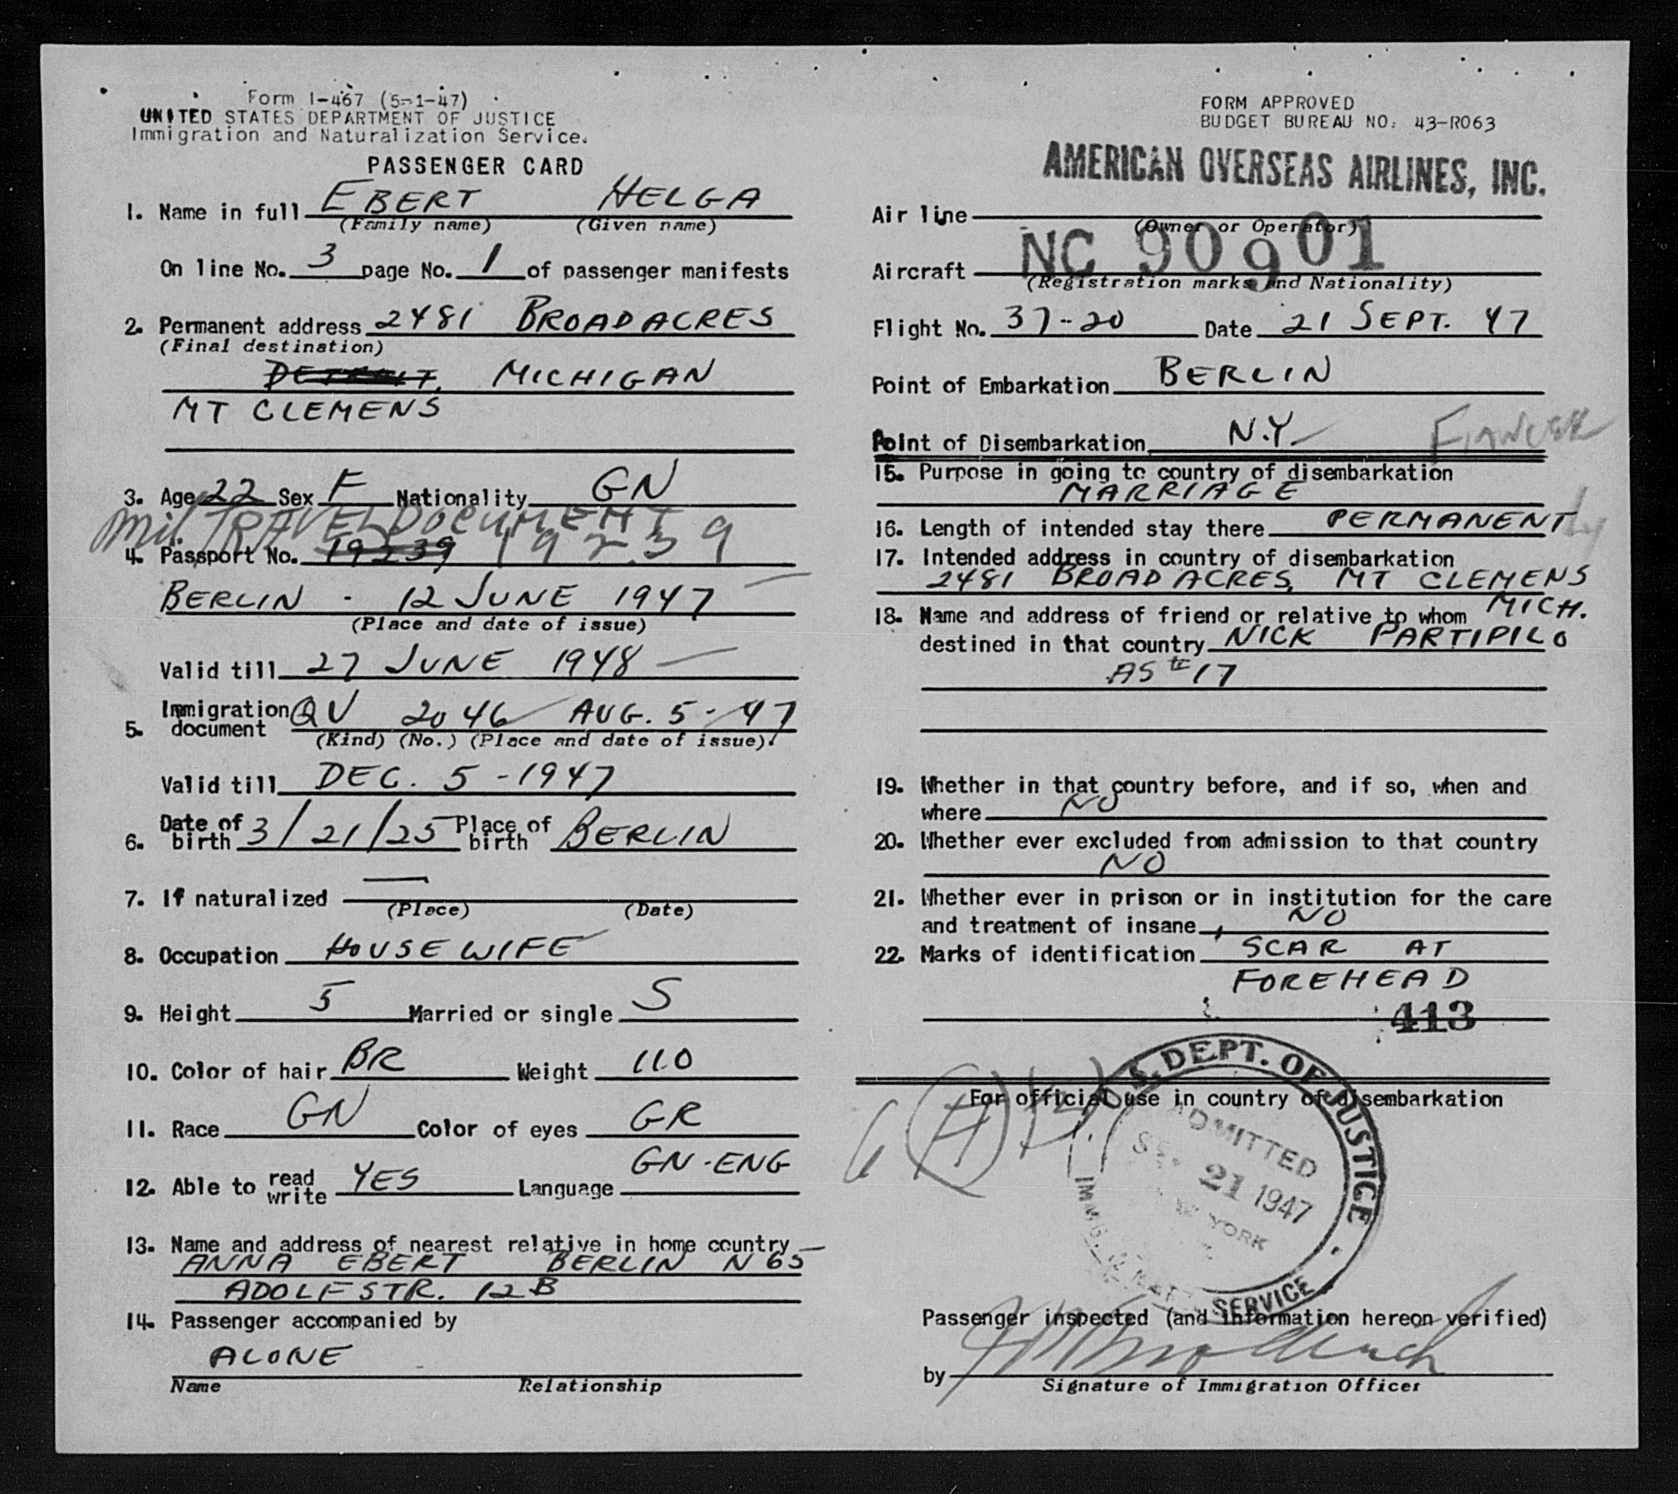 Form I-467 (5-1-47)
UNITED STATES DEPARTMENT OF JUSTICE
Immigration and Naturalization Service.
PASSENGER CARD
1. Name in full EBERT HELGA
(Family name) (Given name)
On line No. 3 page No. 1 of passenger manifests
2. Permanent address 2481 BROADACRES
(Final destination)
DETROIT, MICHIGAN
MT CLEMENS
3. Age 22 Sex F Nationality GN
Mil TRAVEL DOCUMENT
4. Passport No. 19239 19239
BERLIN - 12 JUNE 1947
(Place and date of issue)
Valid till 27 JUNE 1948
5. Immigration document QV 2046 AUG. 5-47
(Kind) (No.) (Place and date of issue).
Valid till DEC. 5-1947
6. Date of birth 3/21/25 Place of birth BERLIN
7. If naturalized —
(Place) (Date)
8. Occupation HOUSEWIFE
9. Height 5 Married or single S
10. Color of hair BR Weight 110
11. Race GN Color of eyes GR
12. Able to read write YES Language GN-ENG
13. Name and address of nearest relative in home country
ANNA EBERT BERLIN N 65
ADOLFSTR. 12B
14. Passenger accompanied by
ALONE
Name Relationship
FORM APPROVED
BUDGET BUREAU NO. 43-R063
AMERICAN OVERSEAS AIRLINES, INC.
Air line
(Owner or Operator)
Aircraft NC 90901
(Registration marks and Nationality)
Flight No. 37-20 Date 21 SEPT. 47
Point of Embarkation BERLIN
Point of Disembarkation N.Y.
15. Purpose in going to country of disembarkation
MARRIAGE
16. Length of intended stay there PERMANENT
17. Intended address in country of disembarkation
2481 BROADACRES, MT CLEMENS
MICH.
18. Name and address of friend or relative to whom
destined in that country NICK PARTIPILO
AS # 17
19. Whether in that country before, and if so, when and
where NO
20. Whether ever excluded from admission to that country
NO
21. Whether ever in prison or in institution for the care
and treatment of insane, NO
22. Marks of identification SCAR AT
FOREHEAD
413
For official use in country of disembarkation
S. DEPT. OF JUSTICE
ADMITTED
21 1947
YORK
SERVICE
Passenger inspected (and information hereon verified)
by
Signature of Immigration Officer